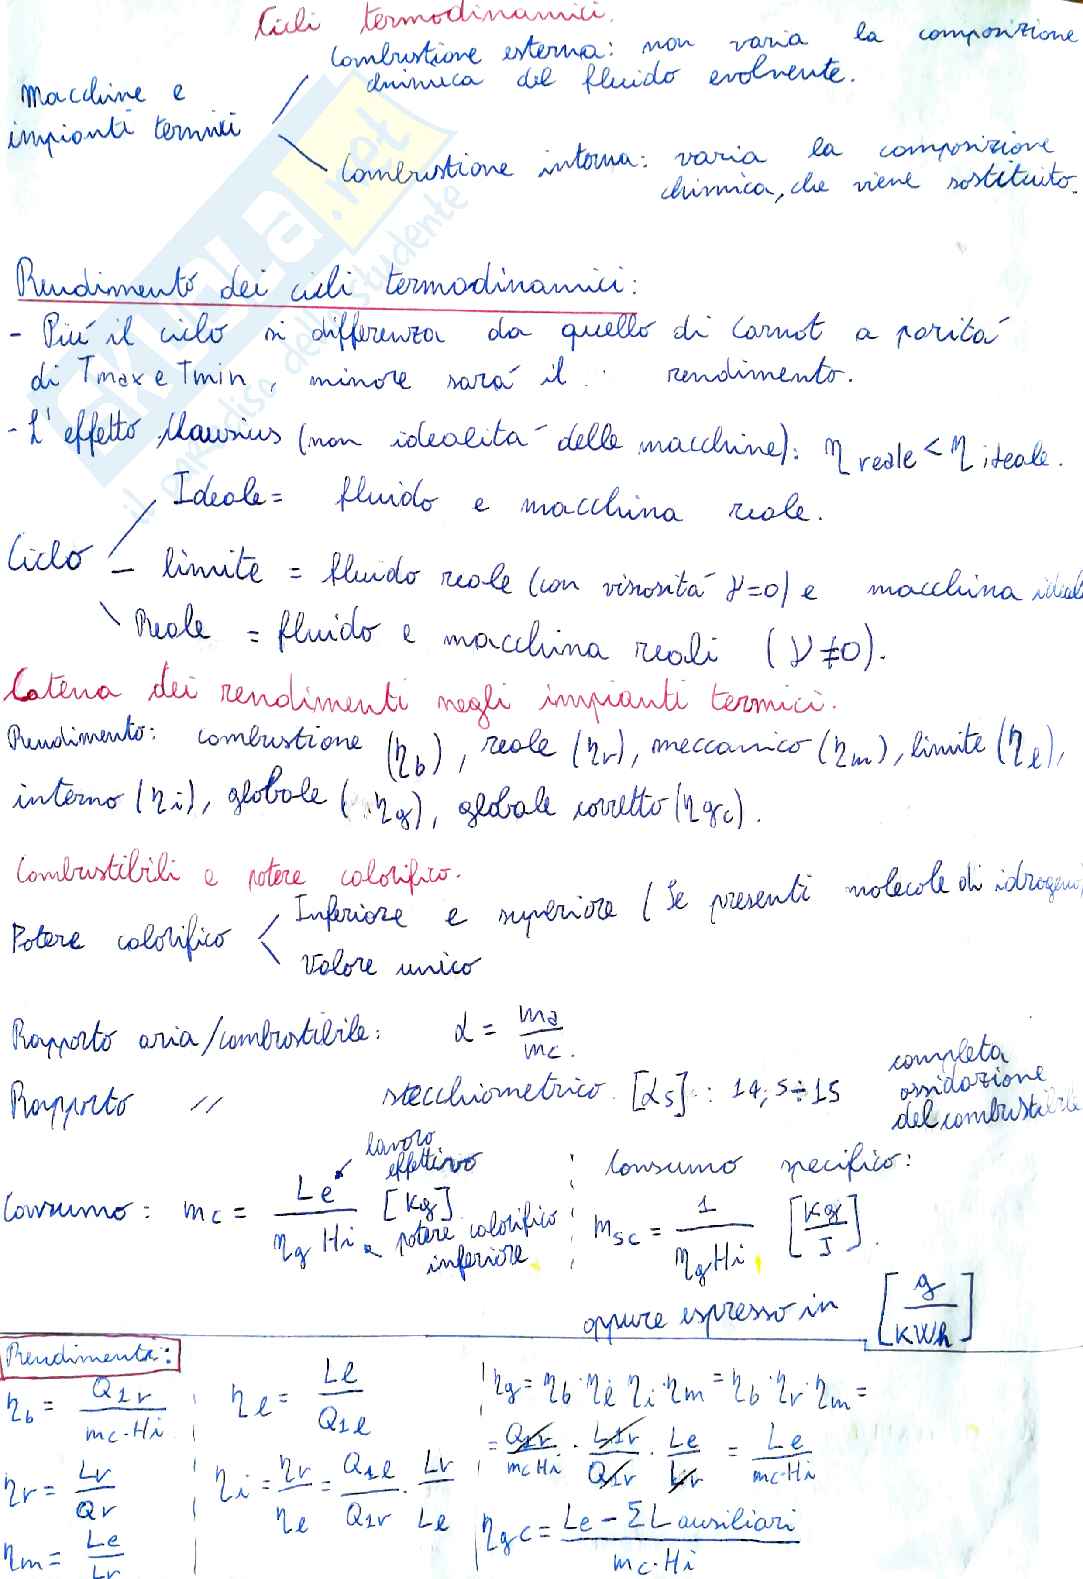 Cicli termodinamici.
Macchine e impianti termici
Combustione esterna: non varia la composizione
chimica del fluido evolvente.
Combustione interna: varia la composizione
chimica, che viene sostituito.
Rendimento dei cicli termodinamici:
- Piú il ciclo si differenza da quello di Carnot a paritá
di Tmax e Tmin, minore sará il rendimento.
- L'effetto Clausius (non idealitá delle macchine): η reale < η ideale.
Ciclo
Ideale = fluido e macchina reale.
– limite = fluido reale (con viscositá γ=0) e macchina ideale
Reale = fluido e macchina reali (γ≠0).
Catena dei rendimenti negli impianti termici.
Rendimento: combustione (ηb), reale (ηr), meccanico (ηm), limite (ηl),
interno (ηi), globale (ηg), globale corretto (ηgc).
Combustibili e potere calorifico.
Potere calorifico
Inferiore e superiore (Se presenti molecole di idrogeno)
Valore unico
Rapporto aria/combustibile: α = ma/mc.
Rapporto // stecchiometrico [αs] : 14,5÷15 completa
ossidazione
del combustibile
Consumo: mc = Le/(ηg Hi) [Kg]
lavoro
effettivo
potere calorifico
inferiore
Consumo specifico:
msc = 1/(ηg Hi) [Kg/J].
oppure espresso in [g/KWh]
Rendimenti:
ηb = Q1r/(mc·Hi)
ηr = Lr/Qr
ηm = Le/Lr
ηl = Ll/Q1l
ηi = ηr/ηl = Q1l/Q1r · Lr/Le
ηg = ηb·ηl ηi·ηm = ηb·ηr·ηm =
= Q1r/(mc Hi) · L1r/Q1r · Le/Lr = Le/(mc·Hi)
ηgc = (Le – Σ L ausiliari)/(mc·Hi)
SKUOLA.net
il paradiso dello studente